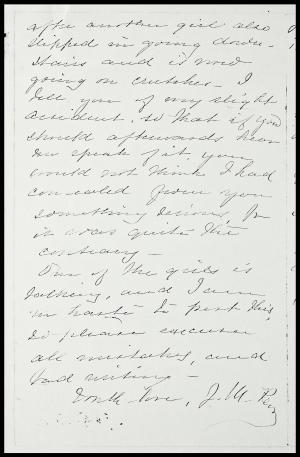 after another girl also
slipped in going down-
stairs and is now
going on crutches - I
tell you of my slight
accident, so that if you
should afterwards hear
me speak of it, you
would not think I had
concealed from you
something serious, for
it was quite the
contrary -
One of the girls is
talking, and I am
in haste to post this,
so please excuse
all mistakes, and
bad writing -
With love, J. M.